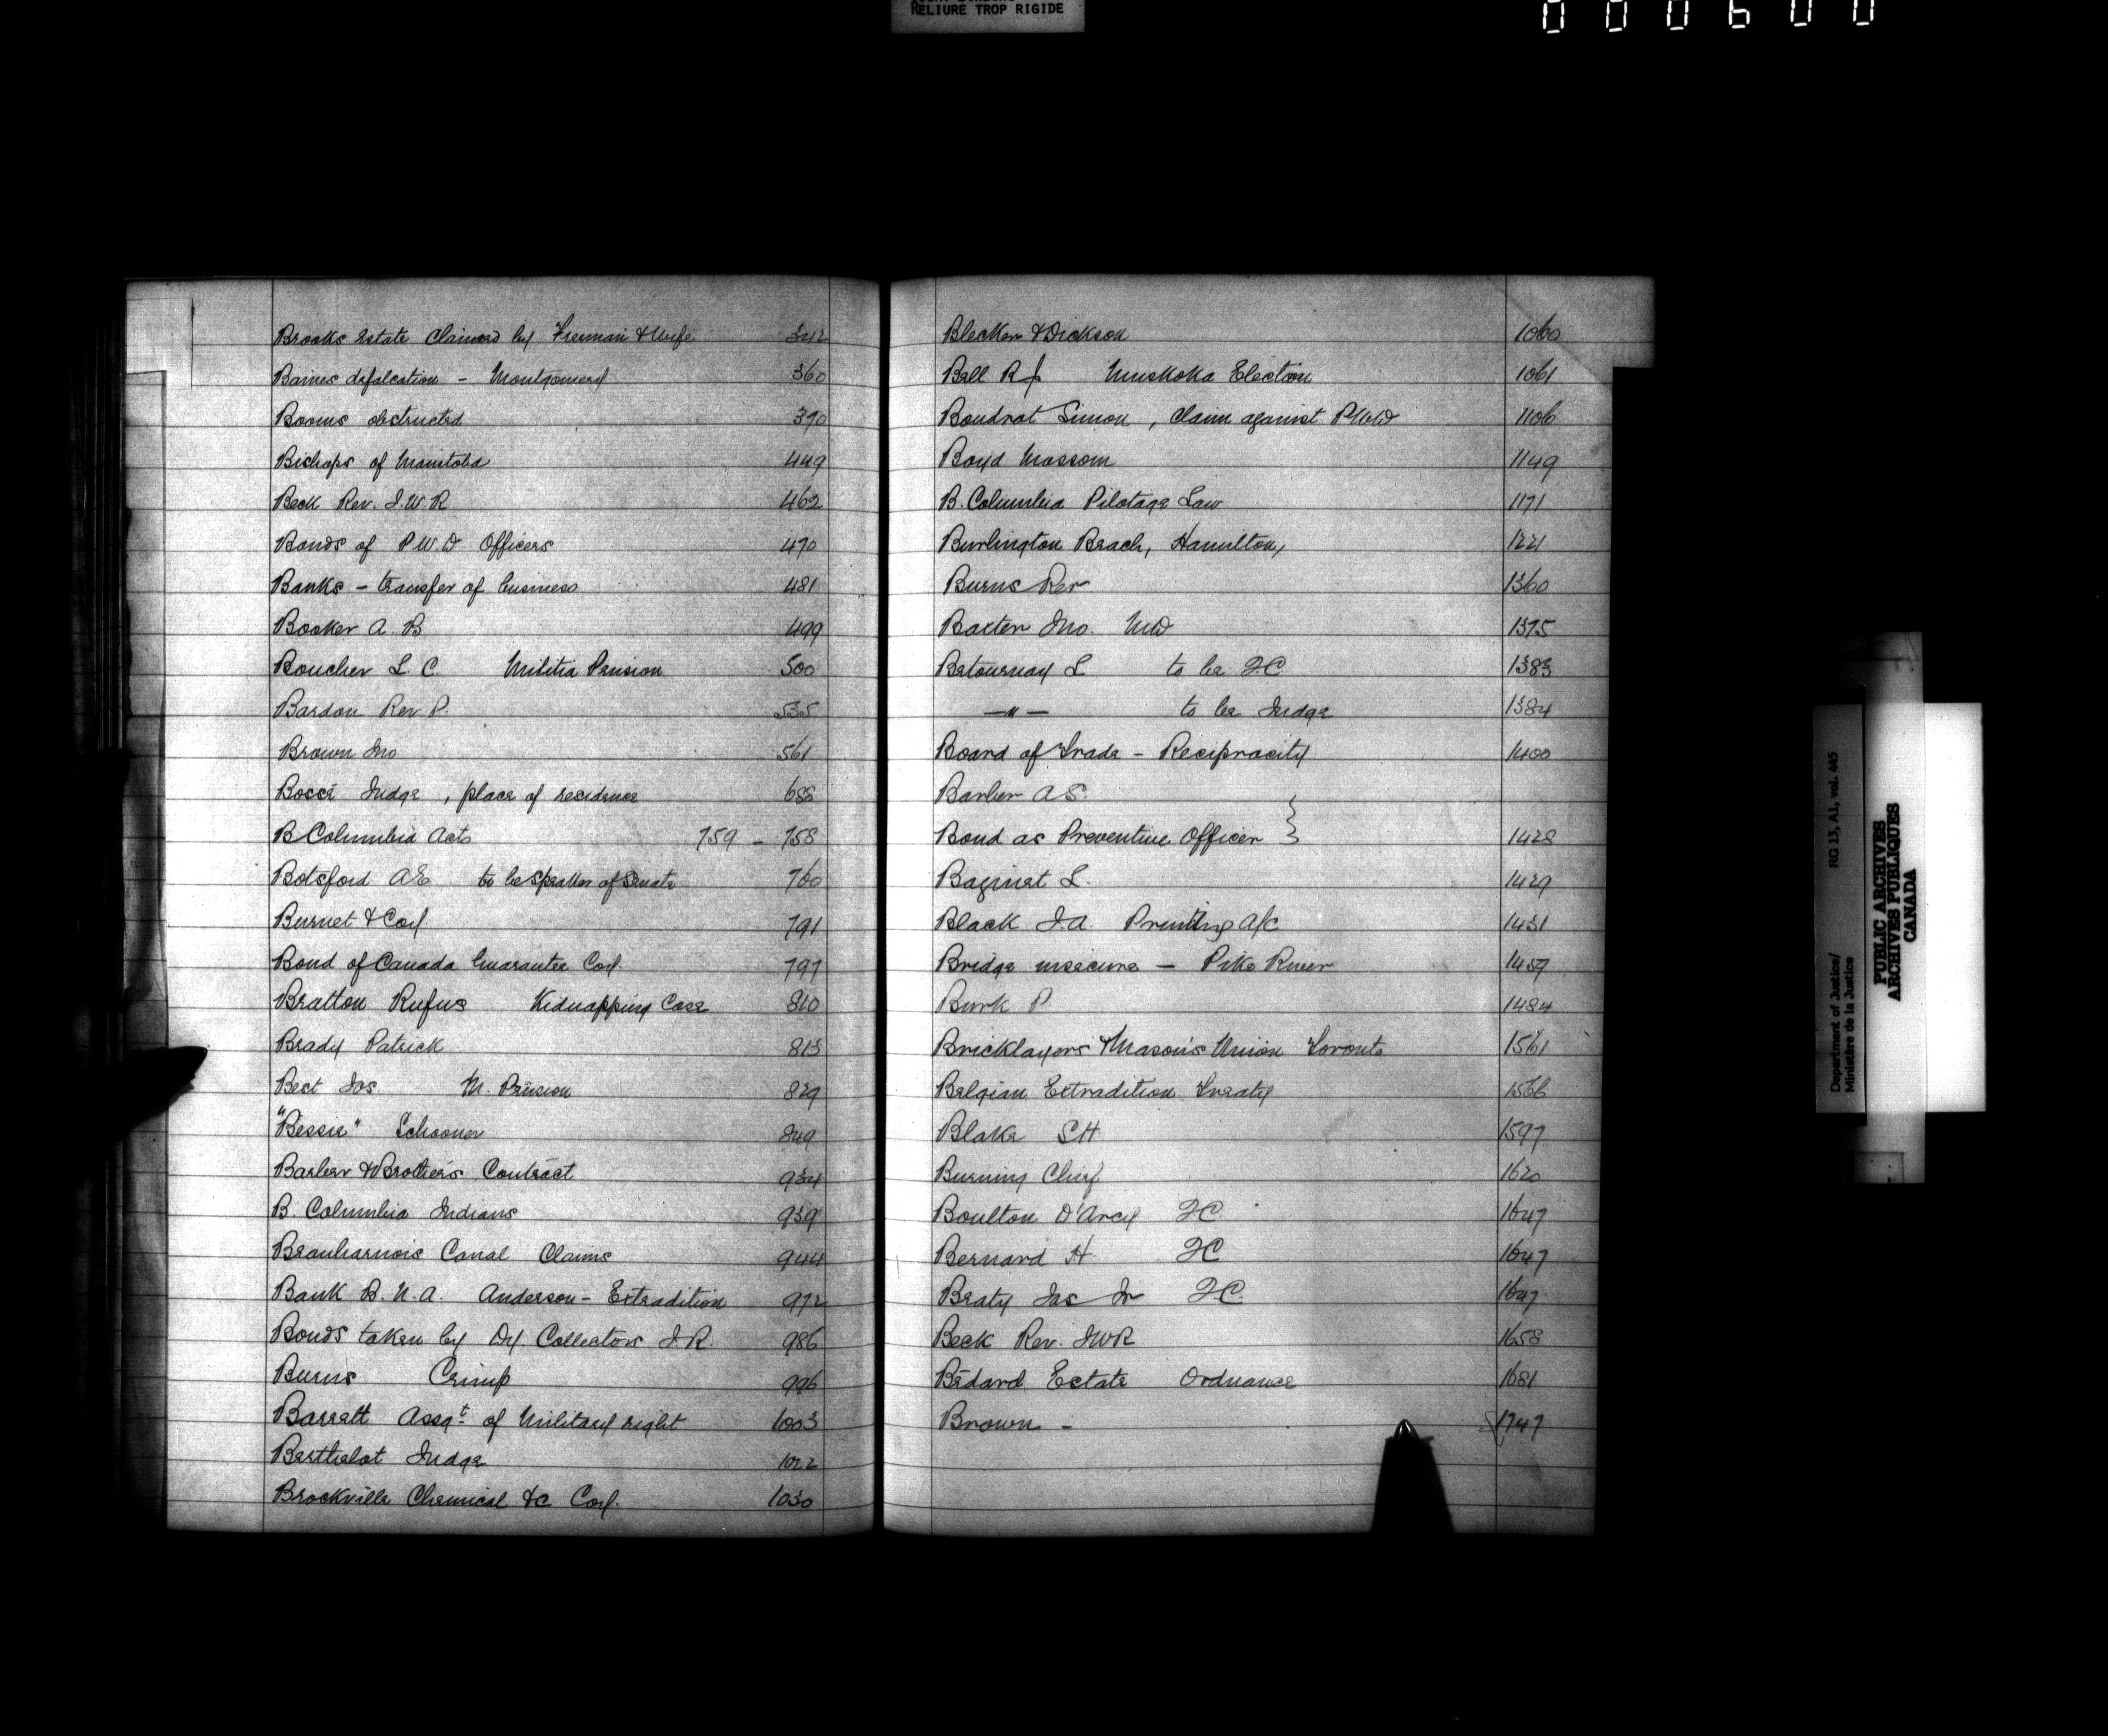 RELIURE TROP RIGIDE
000600
Brooks Estate Claimed by Freeman & Wife 342
Baines defalcation - Montgomery 360
Booms obstructed 390
Bishops of Manitoba 449
Beck Rev. J.W.R 462
Bonds of P.W.D. Officers 470
Banks - transfer of business 481
Booker A. B 499
Boucher L. C. Militia Pension 500
Bardou Rev P. 535
Brown Jno 561
Bossé Judge, place of residence 688
B Columbia Acts 759 - 758
Botsford AE to be Speaker of Senate 760
Burnet & Coy 791
Bond of Canada Guarantee Coy. 797
Bratton Rufus Kidnapping Case 810
Brady Patrick 813
Best Jas M. Pension 829
"Bessie" Schooner 849
Barber & Brothers Contract 934
B. Columbia Indians 939
Beauharnois Canal Claims 944
Bank B. N. A. Anderson - Extradition 972
Bonds taken by Dy. Collectors I. R. 986
Burns Crimp 996
Barratt Assgt. of Military right 1003
Berthelot Judge 1022
Brockville Chemical &c Coy. 1030
Blecker & Dickson 1060
Bell R J Muskoka Election 1061
Boudrot Simon, Claim against PWD 1106
Boyd Mossom 1149
B. Columbia Pilotage Law 1171
Burlington Beach, Hamilton, 1221
Burns Rev 1360
Baxter Jno. MD 1375
Betournay L to be QC 1383
—"— to be Judge 1384
Board of Trade - Reciprocity 1400
Barber AS. }
Bond as Preventive Officer } 1428
Baginet L. 1429
Black J.A. Printing A/c 1431
Bridge insecure — Pike River 1459
Burk P. 1484
Bricklayers & Mason's Union Toronto 1561
Belgian Extradition Treaty 1566
Blake SH 1597
Burning Chief 1620
Boulton D'Arcy QC. 1647
Bernard H. QC 1647
Beaty Jas Jr QC. 1647
Beck Rev. JWR 1658
Bédard Estate Ordnance 1681
Brown - 1747
Department of Justice/
Ministère de la Justice
RG 13, A1, vol. 445
PUBLIC ARCHIVES
ARCHIVES PUBLIQUES
CANADA